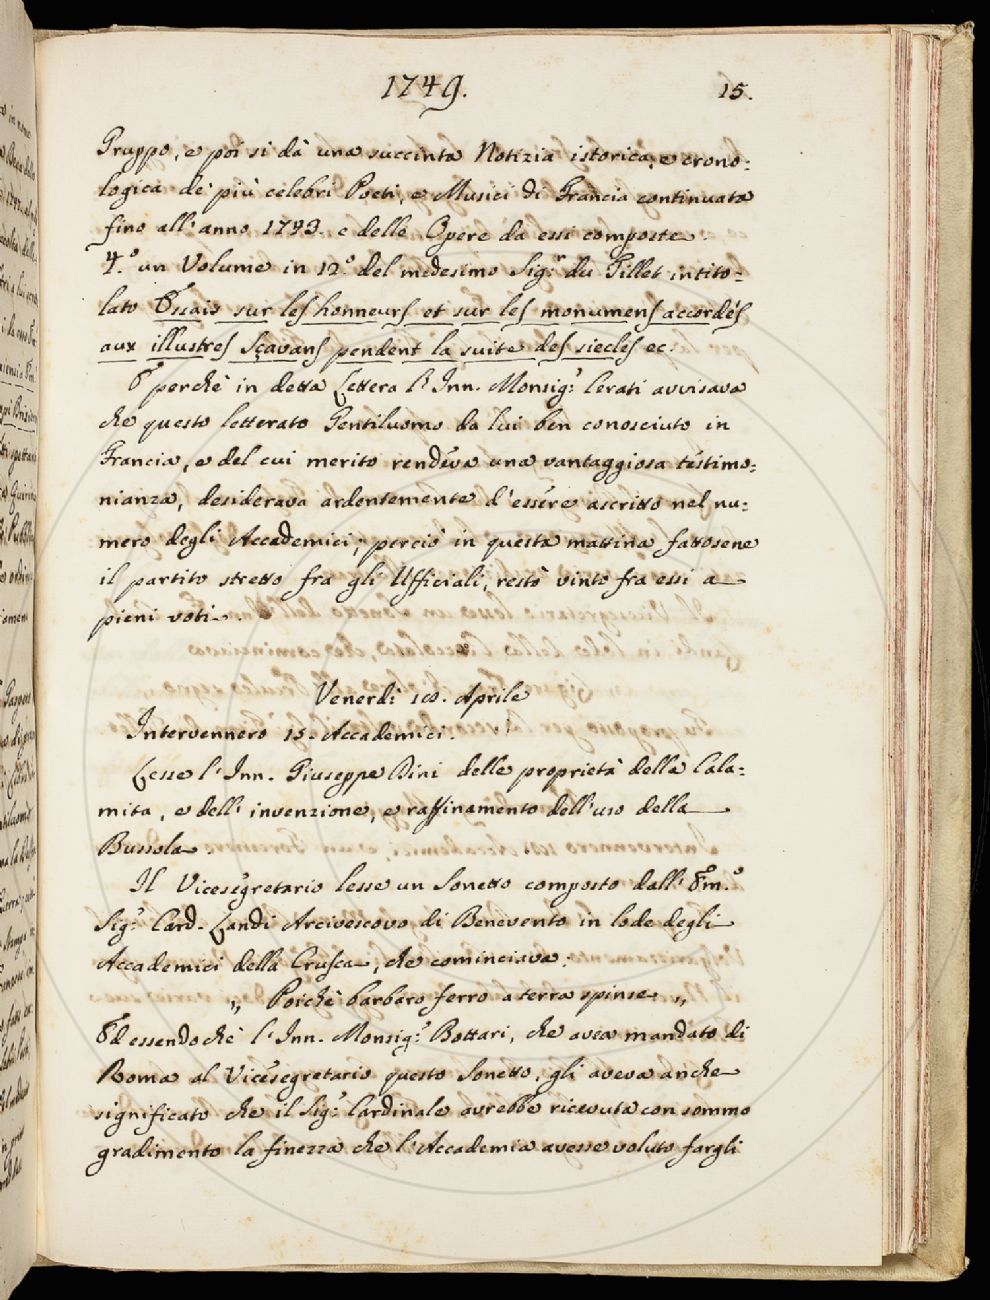 1749.
15.
Gruppo, e poi si dà una succinta Notizia istorica, e crono:
logica de' più celebri Poeti, e Musici di Francia continuata
fino all'anno 1743. e delle Opere da essi composte.
4.° un Volume in 12.° del medesimo Sig.r du Tillet intito-
lato Essais sur les honneurs et sur les monumens accordés
aux illustres Sçavans pendent la suite des siecles ec.
E perchè in detta Lettera l'Inn. Monsig.r Cerati avvisava
che questo letterato Gentiluomo da lui ben conosciuto in
Francia, e del cui merito rendeva una vantaggiosa testimo:
nianza, desiderava ardentemente d'essere ascritto nel nu:
mero degli Accademici; perciò in questa mattina fattosene
il partito stretto fra gli Ufficiali, restò vinto fra essi a
pieni voti.
Venerdì 18. Aprile
Intervennero 15. Accademici.
Lesse l'Inn. Giuseppe Bini delle proprietà della Cala:
mita, e dell'invenzione, e raffinamento dell'uso della
Bussola.
Il Vicesegretario lesse un Sonetto composto dall'Em.°
Sig.r Card. Landi Arcivescovo di Benevento in lode degli
Accademici della Crusca, che cominciava:
„ Poichè barbaro ferro a terra spinse „
Ed essendochè l'Inn. Monsig.r Bottari, che avea mandato di
Roma al Vicesegretario questo Sonetto, gli aveva anche
significato che il Sig.r Cardinale avrebbe ricevuta con sommo
gradimento la finezza che l'Accademia avesse voluto fargli